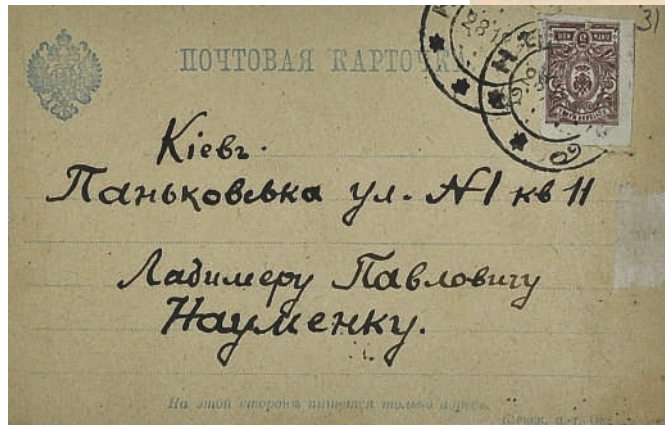 31
ПОЧТОВАЯ КАРТОЧКА
Кіевъ.
Паньковська ул. №1 кв 11
Ладимеру Павловичу
Науменку.
На этой сторонѣ пишется только адресъ.